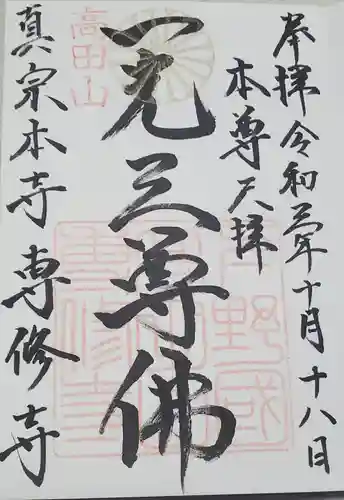 奉拝 令和三年十月十八日
本尊天拝
一光三尊佛
高田山
真宗本寺 専修寺